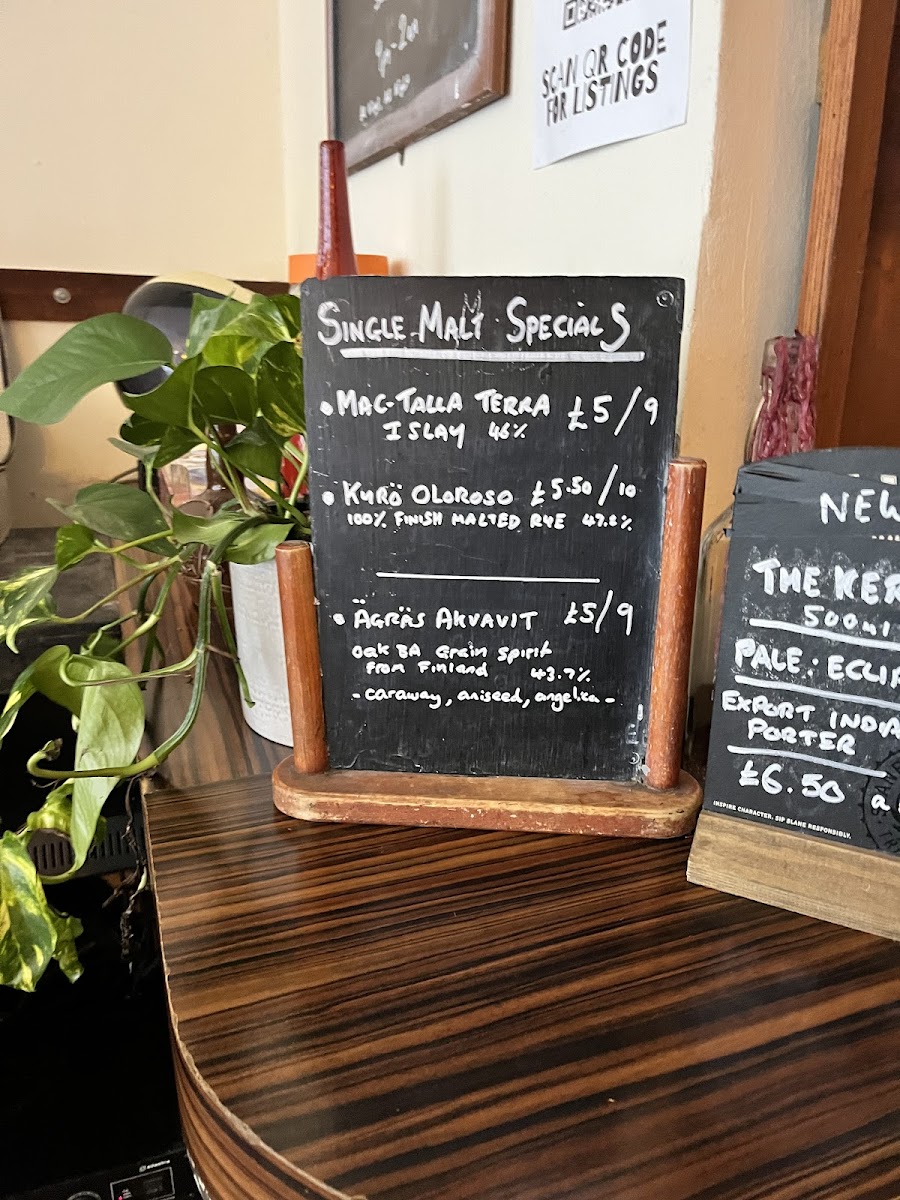 SCAN QR CODE
FOR LISTINGS
SINGLE MALT SPECIALS
• MAC-TALLA TERRA £5/9
ISLAY 46%
• KYRÖ OLOROSO £5.50/10
100% FINISH MALTED RYE 47.2%
• ÄGRÄS AKVAVIT £5/9
oak BA Grain Spirit
From Finland 43.7%
- caraway, aniseed, angelica -
NEW
THE KER
500ml
PALE: ECLIP
EXPORT INDIA
PORTER
£6.50
INSPIRE CHARACTER. SIP BLANE RESPONSIBLY.